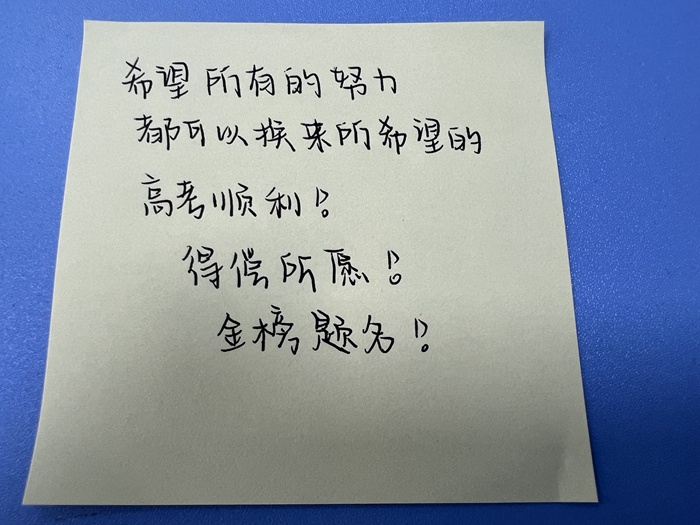 希望所有的努力
都可以换来所希望的
高考顺利!
得偿所愿!
金榜题名!